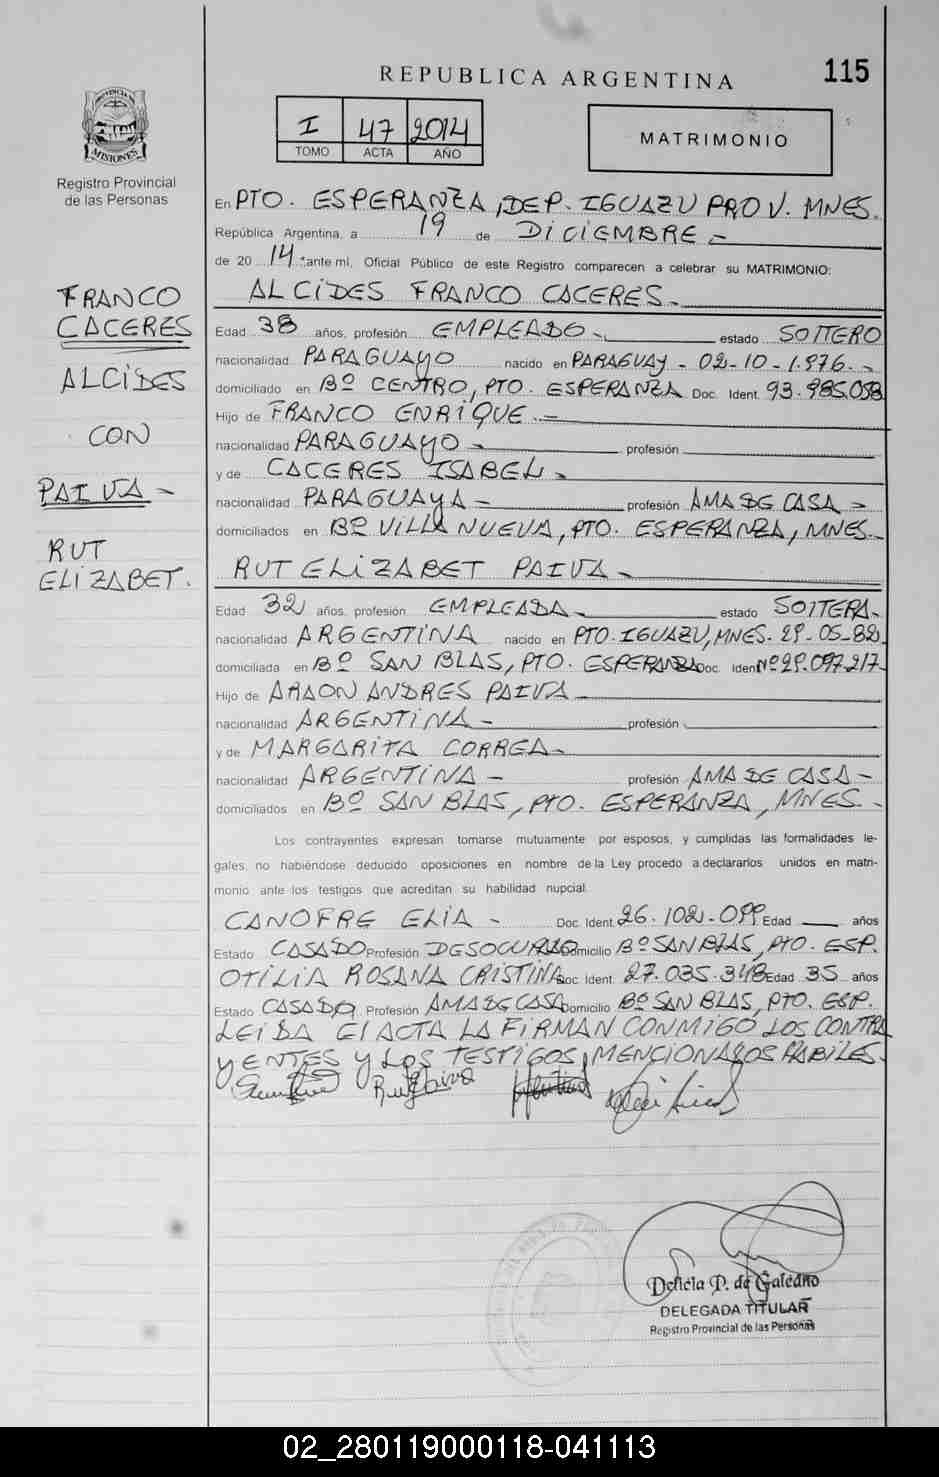 REPUBLICA ARGENTINA
115
PROVINCIA DE
MISIONES
Registro Provincial
de las Personas
I 47 2014
TOMO ACTA AÑO
MATRIMONIO
En PTO. ESPERANZA, DEP. IGUAZU PROV. MNES.
República Argentina, a 19 de DICIEMBRE -
de 20 14 ante mi, Oficial Público de este Registro comparecen a celebrar su MATRIMONIO:
FRANCO
CACERES
ALCIDES
CON
PAIVA -
RUT
ELIZABET.
ALCIDES FRANCO CACERES -
Edad 38 años, profesión EMPLEADO - estado SOLTERO
nacionalidad PARAGUAYO nacido en PARAGUAY - 02-10-1.976 -
domiciliado en Bº CENTRO, PTO. ESPERANZA Doc. Ident. 93.985.058
Hijo de FRANCO ENRIQUE -
nacionalidad PARAGUAYO - profesión
y de CACERES ISABEL -
nacionalidad PARAGUAYA - profesión AMA DE CASA -
domiciliados en Bº VILLA NUEVA, PTO. ESPERANZA, MNES. -
RUT ELIZABET PAIVA -
Edad 32 años, profesión EMPLEADA - estado SOLTERA -
nacionalidad ARGENTINA nacido en PTO. IGUAZU, MNES. 29-05-82
domiciliada en Bº SAN BLAS, PTO. ESPERANZA Doc. Iden Nº 29.097.217-
Hijo de ARAON ANDRES PAIVA -
nacionalidad ARGENTINA - profesión
y de MARGARITA CORREA -
nacionalidad ARGENTINA - profesión AMA DE CASA -
domiciliados en Bº SAN BLAS, PTO. ESPERANZA, MNES. -
Los contrayentes expresan tomarse mutuamente por esposos, y cumplidas las formalidades le-
gales, no habiéndose deducido oposiciones en nombre de la Ley procedo a declararlos unidos en matri-
monio ante los testigos que acreditan su habilidad nupcial.
CANOFRE ELIA - Doc. Ident. 26.102.099 Edad años
Estado CASADO Profesión DESOCUPADO Domicilio Bº SAN BLAS, PTO. ESP.
OTILIA ROSANA CRISTINA Doc. Ident. 27.035.348 Edad 35 años
Estado CASADO Profesión AMA DE CASA Domicilio Bº SAN BLAS, PTO. ESP.
LEIDA El ACTA LA FIRMAN CONMIGO LOS CONTRA
YENTES Y LOS TESTIGOS MENCIONADOS HABILES -
Delicia P. de Galeano
DELEGADA TITULAR
Registro Provincial de las Personas
02_280119000118-041113